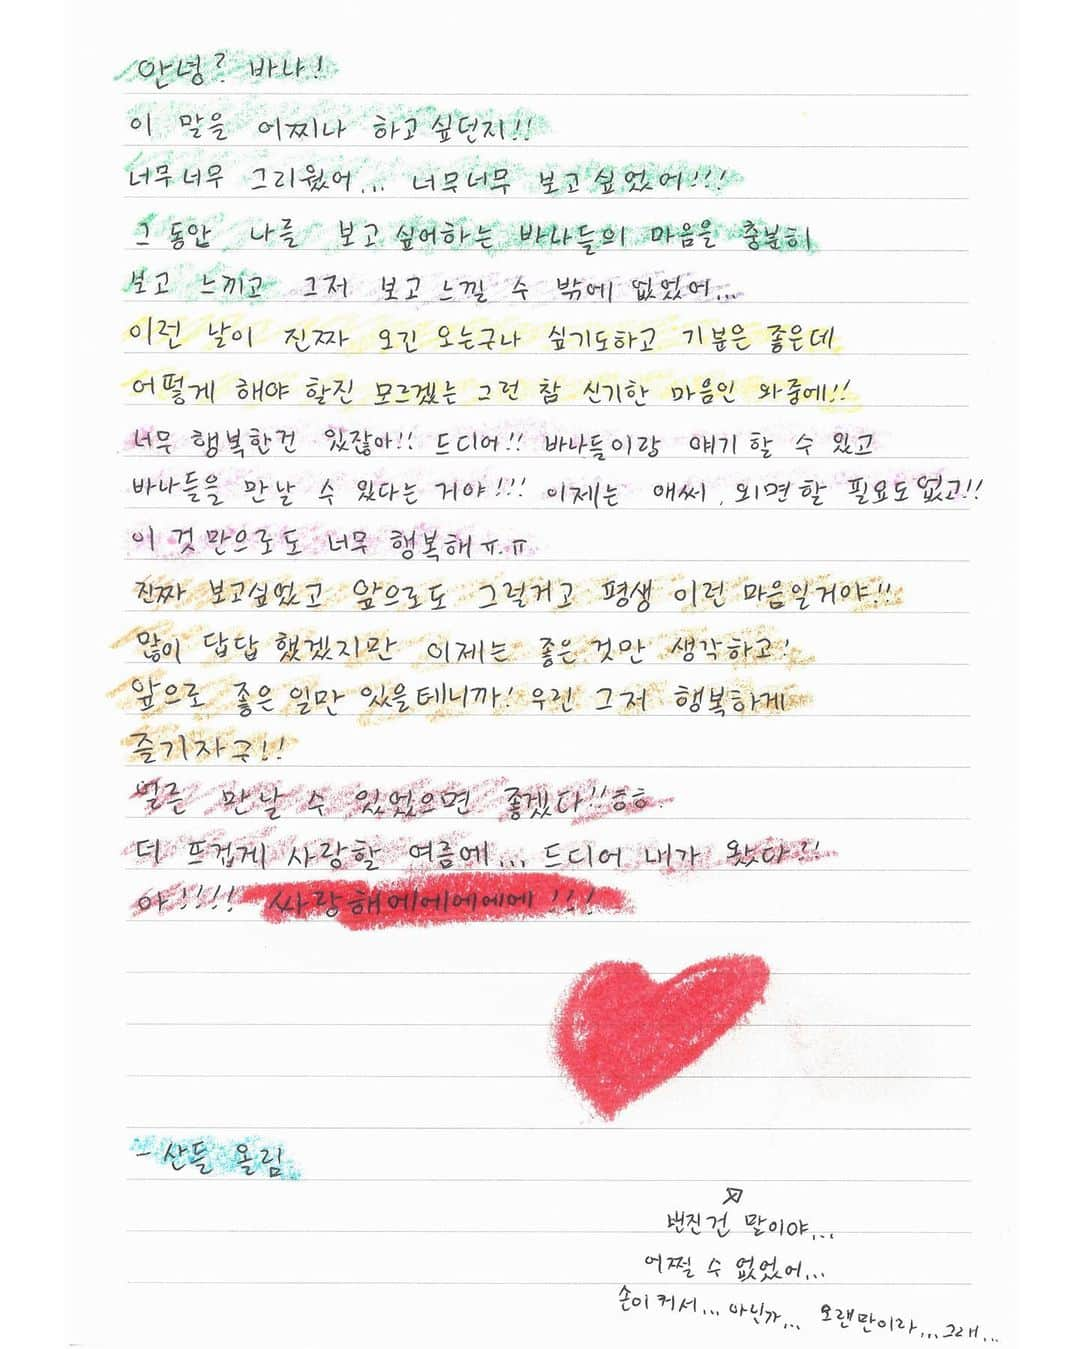 안녕? 바나!
이 말을 어찌나 하고싶던지!!
너무너무 그리웠어... 너무너무 보고싶었어!!!
그동안 나를 보고싶어하는 바나들의 마음을 충분히
보고 느끼고 그저 보고 느낄 수 밖에 없었어...
이런 날이 진짜 오긴 오는구나 싶기도하고 기분은 좋은데
어떻게 해야 할진 모르겠는 그런 참 신기한 마음인 와중에!!
너무 행복한건 있잖아!! 드디어!! 바나들이랑 얘기 할 수 있고
바나들을 만날 수 있다는 거야!!! 이제는 애써, 외면할 필요도없고!!
이것만으로도 너무 행복해ㅠ.ㅠ
진짜 보고싶었고 앞으로도 그럴거고 평생 이런 마음일거야!!
많이 답답했겠지만 이제는 좋은것만 생각하고!
앞으로 좋은 일만 있을테니까! 우린 그저 행복하게
즐기자구!!
얼른 만날 수 있었으면 좋겠다!!ㅎㅎ.
더 뜨겁게 사랑할 여름에... 드디어 내가 왔다!!
아!!!! 싸랑해에에에에에!!!
- 산들 올림
번진건 말이야...
어쩔 수 없었어...
손이커서... 아닌가... 오랜만이라... 그래...